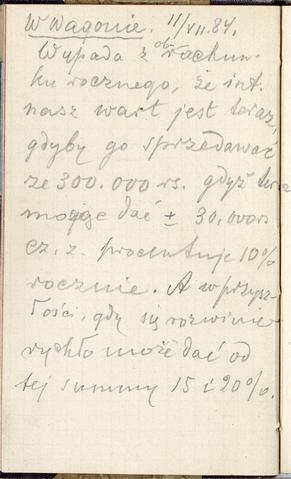 W Wagonie. 11/VII.84.
Wypada z obrachun-
ku rocznego, że int.
nasz wart jest teraz,
gdyby go sprzedawać
ze 300.000 rs. gdyż teraz
może dać ± 30,000 rs
cz. z. procentuje 10%
rocznie. A w przysz-
łości, gdy się rozwinie
rychło może dać od
tej summy 15 i 20%.